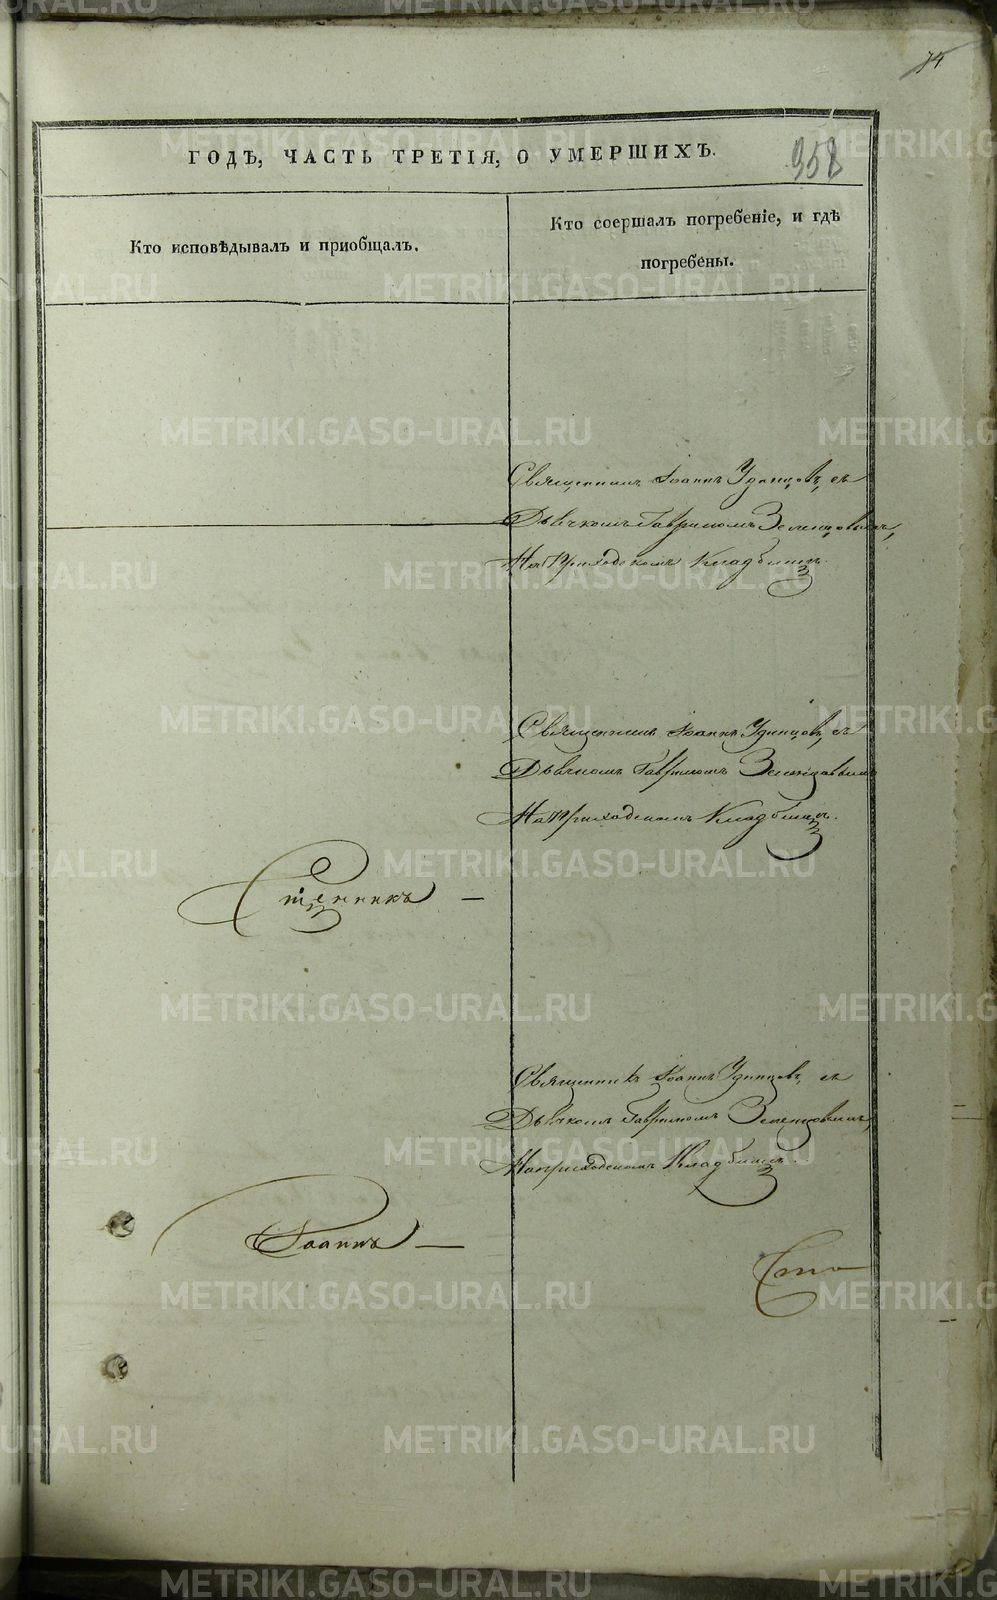 74
958
ГОДѢ, ЧАСТЬ ТРЕТІЯ, О УМЕРШИХЪ.
Кто исповѣдывалъ и пріобщалъ.
Кто соершалъ погребеніе, и гдѣ
погребены.
Священникъ Іоаннъ Удинцовъ, съ
Дьячкомъ Гавриломъ Зеленцовымъ,
На Приходскомъ Кладбищѣ.
Священникъ Іоаннъ Удинцовъ, съ
Дьячкомъ Гавриломъ Зеленцовымъ
На Приходскомъ Кладбищѣ.
Сщенникъ —
Священникъ Іоаннъ Удинцовъ, съ
Дьячкомъ Гавриломъ Зеленцовымъ,
На приходскомъ Кладбищѣ.
Іоаннъ —
METRIKI.GASO-URAL.RU